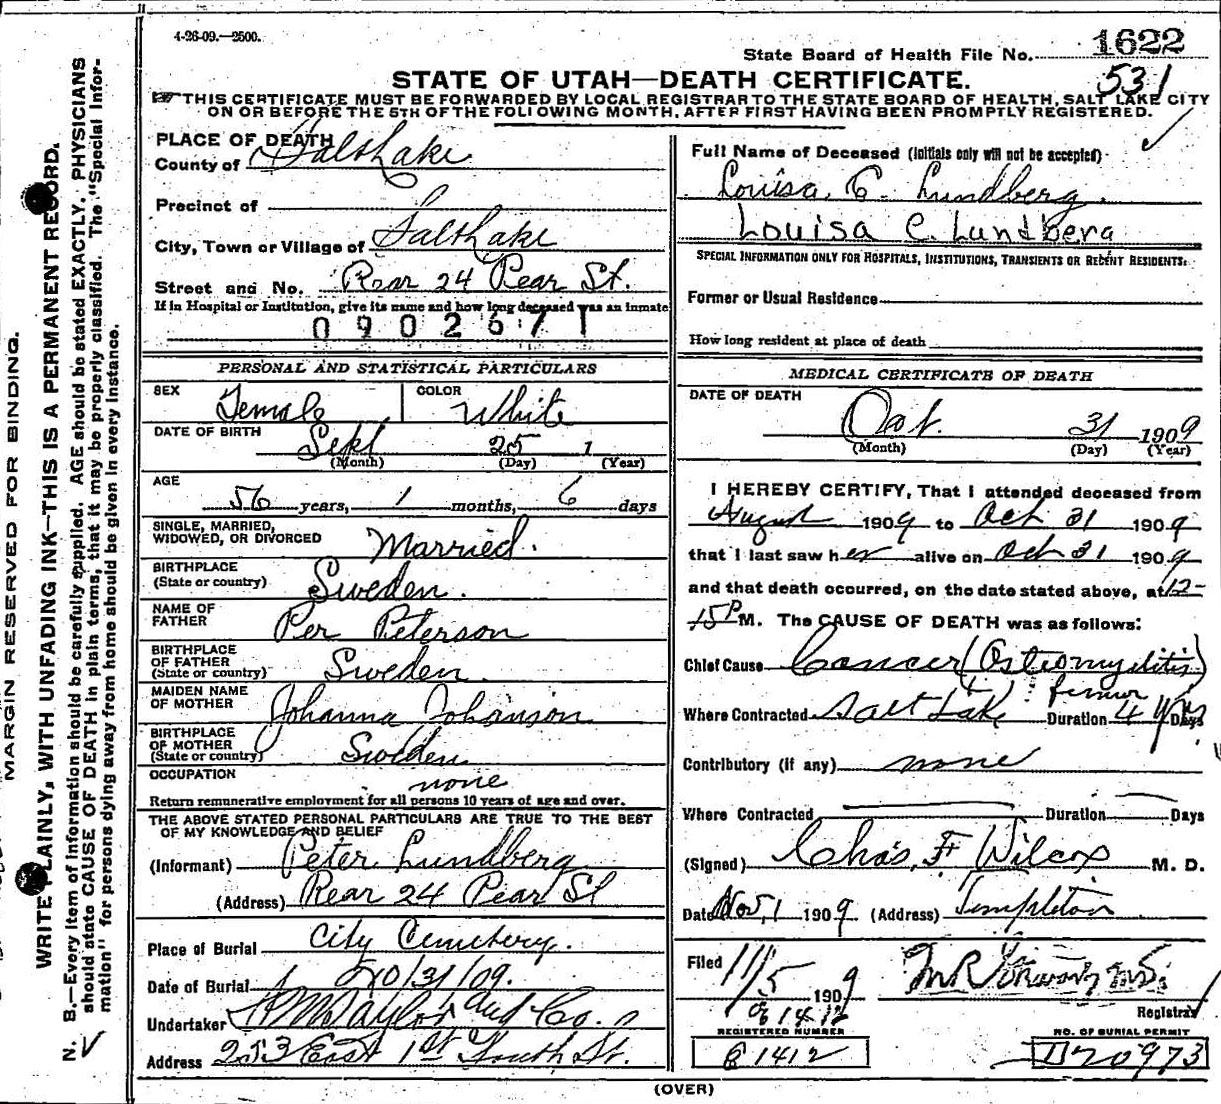 4-26-09.—2500.
State Board of Health File No. 1622
531
STATE OF UTAH—DEATH CERTIFICATE.
THIS CERTIFICATE MUST BE FORWARDED BY LOCAL REGISTRAR TO THE STATE BOARD OF HEALTH, SALT LAKE CITY
ON OR BEFORE THE 5TH OF THE FOLLOWING MONTH, AFTER FIRST HAVING BEEN PROMPTLY REGISTERED.
MARGIN RESERVED FOR BINDING.
WRITE PLAINLY, WITH UNFADING INK—THIS IS A PERMANENT RECORD.
N. B.—Every item of information should be carefully supplied. AGE should be stated EXACTLY. PHYSICIANS
should state CAUSE OF DEATH in plain terms, that it may be properly classified. The "Special Infor-
mation" for persons dying away from home should be given in every instance.
PLACE OF DEATH
County of Salt Lake
Precinct of
City, Town or Village of Salt Lake
Street and No. Rear 24 Pear St.
If in Hospital or Institution, give its name and how long deceased was an inmate
0902671
PERSONAL AND STATISTICAL PARTICULARS
SEX Female
COLOR White
DATE OF BIRTH Sept 25 1
(Month) (Day) (Year)
AGE
56 years, 1 months, 6 days
SINGLE, MARRIED,
WIDOWED, OR DIVORCED Married.
BIRTHPLACE
(State or country) Sweden.
NAME OF
FATHER Per Peterson
BIRTHPLACE
OF FATHER
(State or country) Sweden.
MAIDEN NAME
OF MOTHER Johanna Johanson
BIRTHPLACE
OF MOTHER
(State or country) Sweden
OCCUPATION none
Return remunerative employment for all persons 10 years of age and over.
THE ABOVE STATED PERSONAL PARTICULARS ARE TRUE TO THE BEST
OF MY KNOWLEDGE AND BELIEF
(Informant) Peter Lundberg
(Address) Rear 24 Pear St
Place of Burial City Cemetery.
Date of Burial 10/31/09.
Undertaker Taylor and Co.
Address 253 East 1st South St.
Full Name of Deceased (Initials only will not be accepted)
Louisa C. Lundberg.
Louisa C. Lundberg
SPECIAL INFORMATION ONLY FOR HOSPITALS, INSTITUTIONS, TRANSIENTS OR RECENT RESIDENTS:
Former or Usual Residence
How long resident at place of death
MEDICAL CERTIFICATE OF DEATH
DATE OF DEATH
Oct. 31 1909
(Month) (Day) (Year)
I HEREBY CERTIFY, That I attended deceased from
August 1909 to Oct 31 1909
that I last saw her alive on Oct 31 1909
and that death occurred, on the date stated above, at 12-
15 P M. The CAUSE OF DEATH was as follows:
Chief Cause Cancer (Osteomyelitis)
femur
Where Contracted Salt Lake Duration 4 yrs Days
Contributory (if any) none
Where Contracted Duration Days
(Signed) Chas. F Wilcox M. D.
Date Nov, 1 1909 (Address) Templeton
Filed 11/5 1909
Registrar
REGISTERED NUMBER
C 1412
NO. OF BURIAL PERMIT
D20973
(OVER)